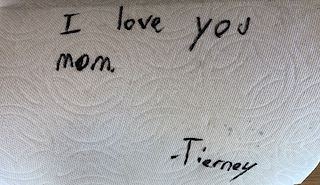 I love you
mom.
-Tierney